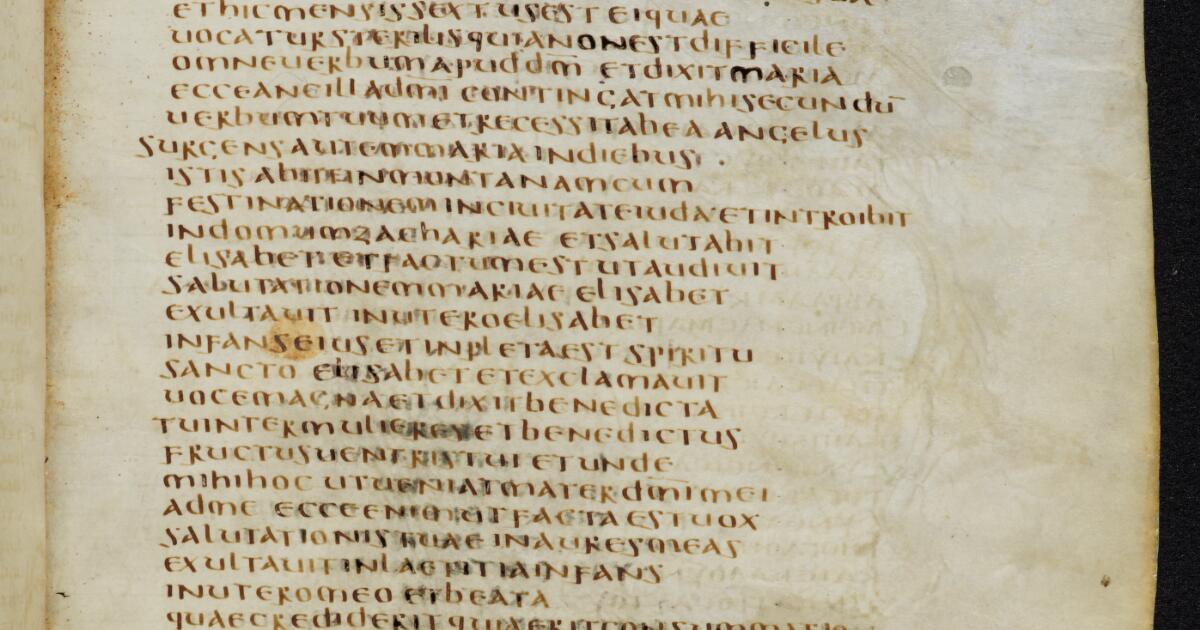 ETHICMENSISSEXTUSESTEIQUAE
UOCATURSTERILISQUIANONESTDIFFICILE
OMNEUERBUMAPUDDM̄ ETDIXITMARIA
ECCEANCILLADMI CONTINGATMIHISECUNDŪ
UERBUMTUUMETRECESSITABEA ANGELUS
SURGENSAUTEMMARIAINDIEBUS
ISTISABIITINMONTANAMCUM
FESTINATIONEMINCIUITATEIUDAETINTROIBIT
INDOMUMZACHARIAE ETSALUTABIT
ELISABETETFACTUMESTUTAUDIUIT
SALUTATIONEMMARIAE ELISABET
EXULTAUIT INUTEROELISABET
INFANSEIUSETINPLETAEST SPIRITU
SANCTO ELISABETETEXCLAMAUIT
UOCEMAGNAETDIXITBENEDICTA
TUINTERMULIERESETBENEDICTUS
FRUCTUSUENTRISTUI ETUNDE
MIHIHOC UTUENIATMATERDMIMEI
ADME ECCEENIMUTFACTAESTUOX
SALUTATIONISTUAE INAURESMEAS
EXULTAUITINLAETITIAINFANS
INUTEROMEO ETBEATA
QUAECREDIDERITQUIAERITCONSUMMATIO